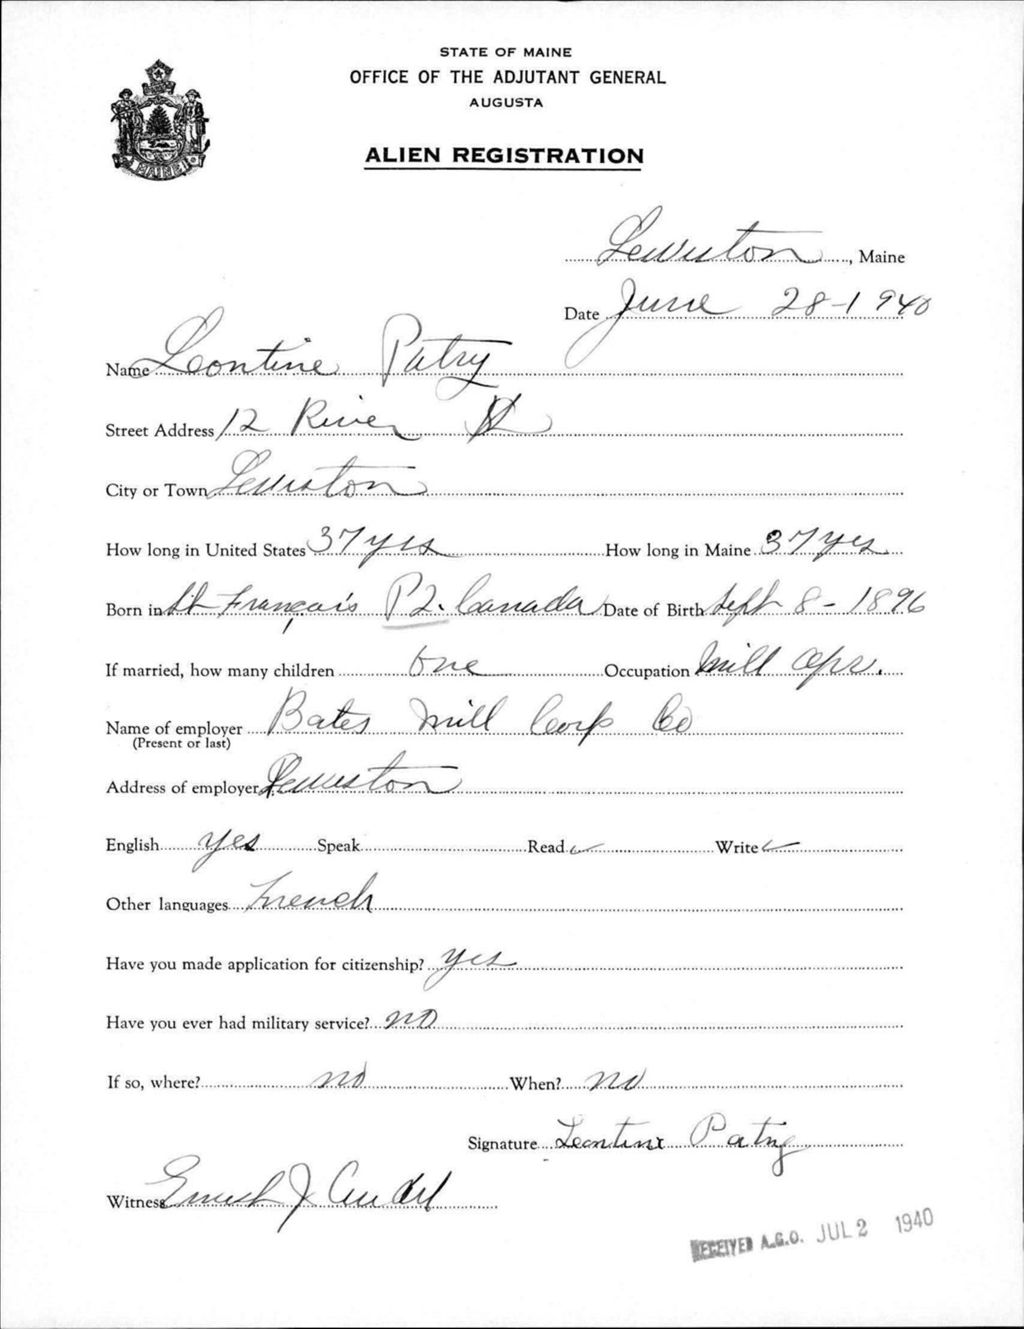 STATE OF MAINE
OFFICE OF THE ADJUTANT GENERAL
AUGUSTA
ALIEN REGISTRATION
MAINE
Lewiston, Maine
Date June 28-1940
Name Leontine Patry
Street Address 12 River St
City or Town Lewiston
How long in United States 37 yrs How long in Maine 37 yrs
Born in St François P.Q. Canada Date of Birth Sept 8-1896
If married, how many children one Occupation Mill Opr.
Name of employer Bates Mill Corp Co
(Present or last)
Address of employer Lewiston
English yes Speak Read ✓ Write ✓
Other languages French
Have you made application for citizenship? yes
Have you ever had military service? no
If so, where? no When? no
Signature Leontine Patry
Witness J
RECEIVED A.G.O. JUL 2 1940